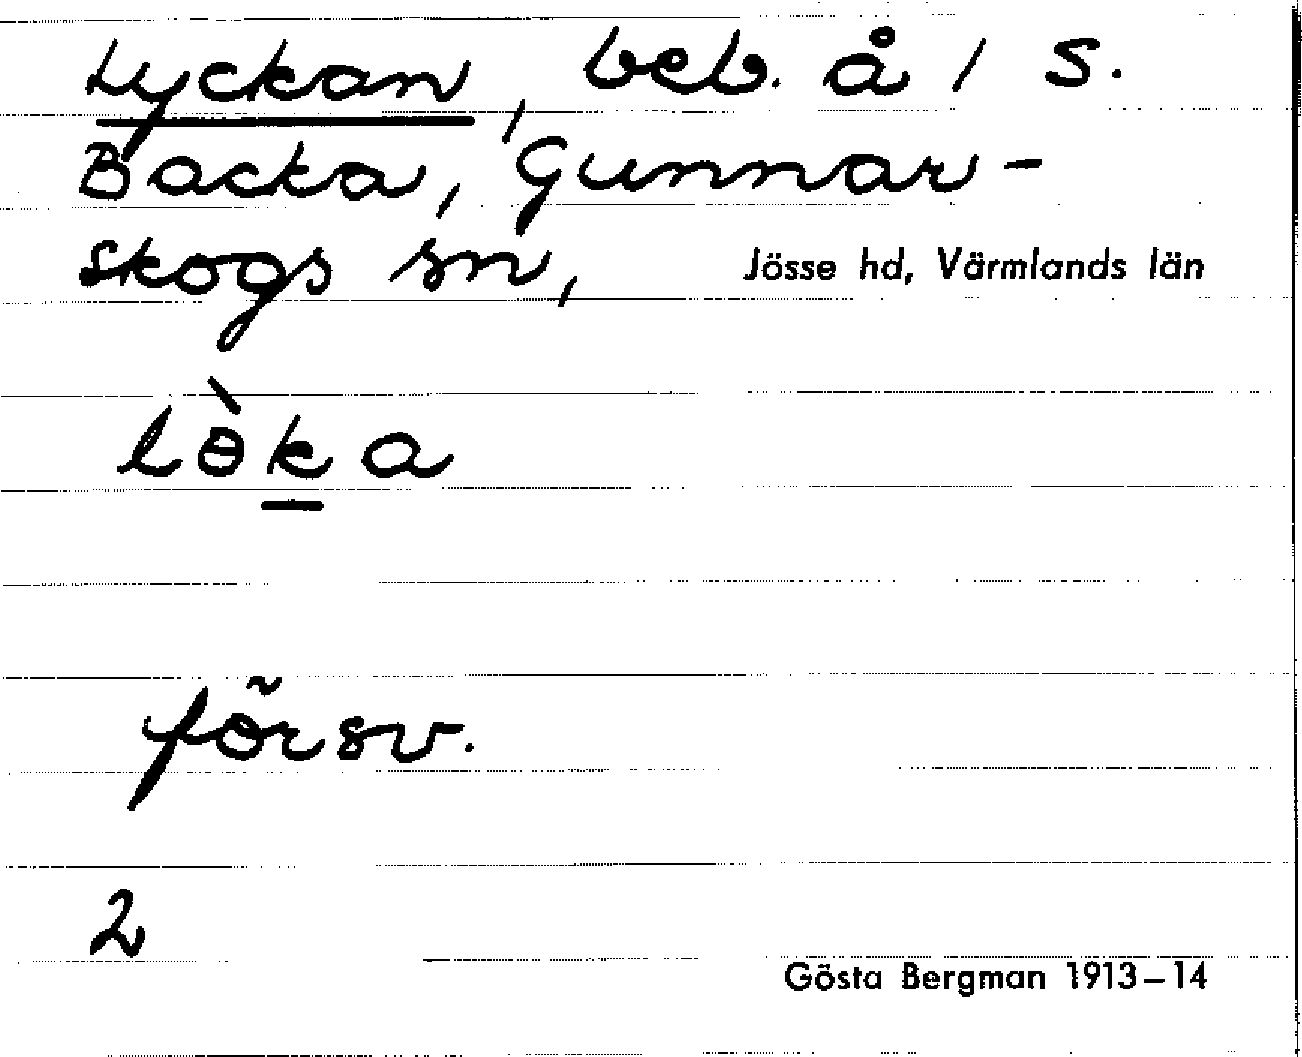 Lyckan, beb. å 1 S.
Backa, Gunnar-
skogs sn, Jösse hd, Värmlands län
lɵ̀ka
försv.
2
Gösta Bergman 1913–14